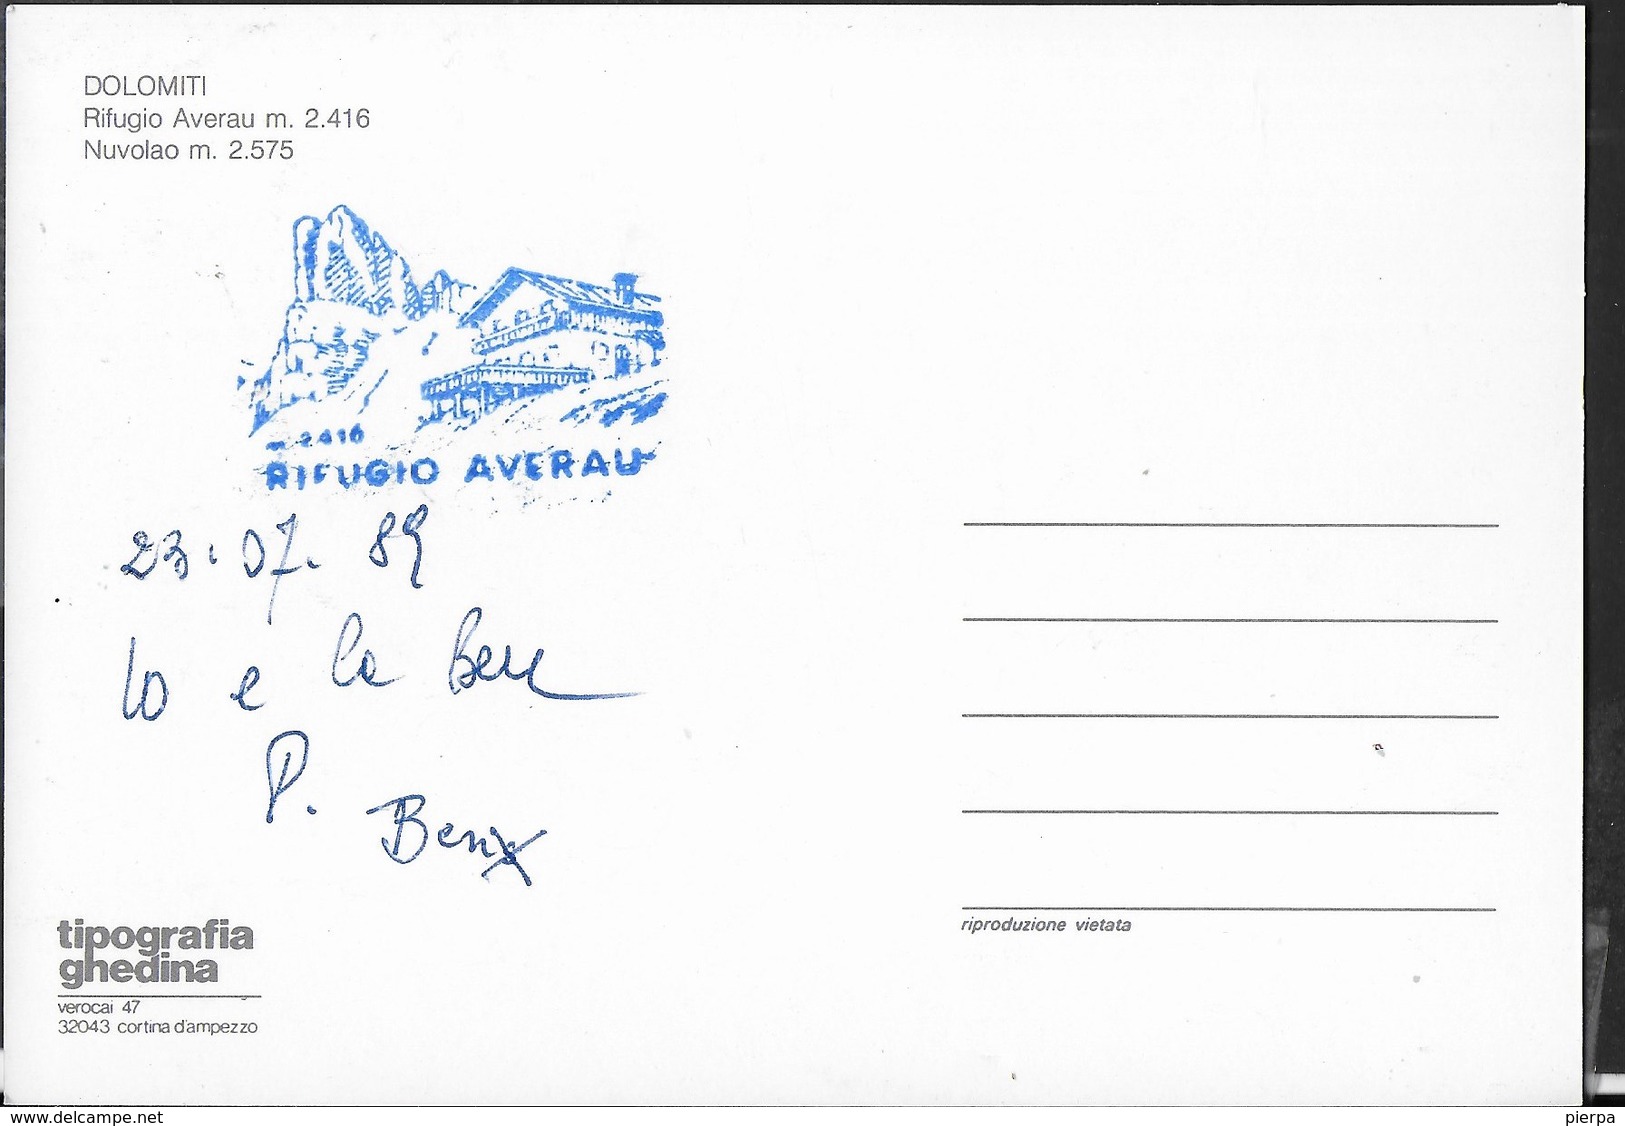 DOLOMITI
Rifugio Averau m. 2.416
Nuvolao m. 2.575
m 2416
RIFUGIO AVERAU
23.07.89
Io e la
P.
tipografia
ghedina
verocai 47
32043 cortina d'ampezzo
riproduzione vietata
www.delcampe.net
pierpa